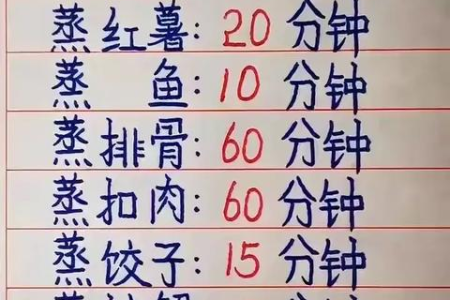 蒸红薯: 20 分钟
蒸 鱼: 10 分钟
蒸排骨: 60 分钟
蒸扣肉: 60 分钟
蒸饺子: 15 分钟